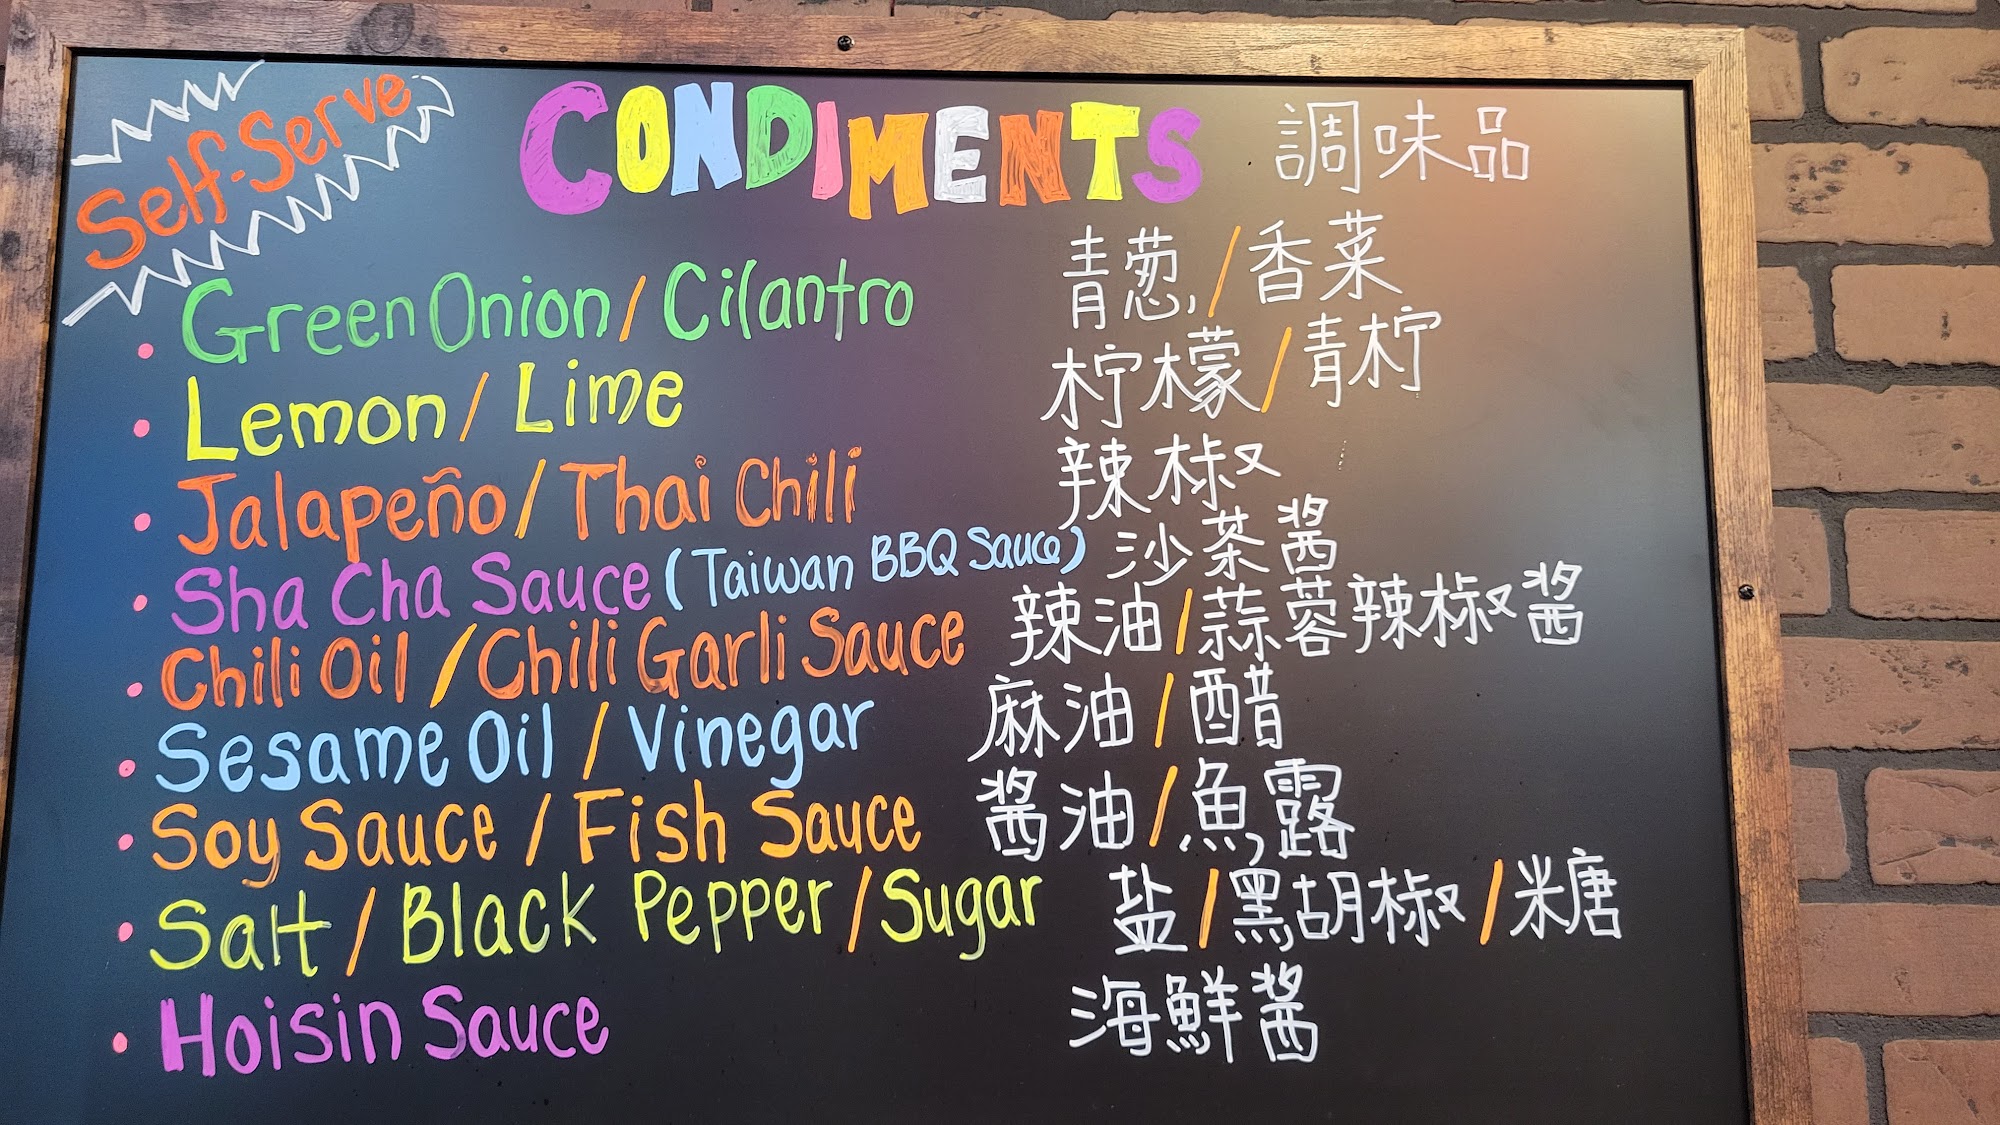 Self-Serve
CONDIMENTS 調味品
• Green Onion / Cilantro 青葱 / 香菜
• Lemon / Lime 柠檬 / 青柠
• Jalapeño / Thai Chili 辣椒
• Sha Cha Sauce (Taiwan BBQ Sauce) 沙茶酱
• Chili Oil / Chili Garli Sauce 辣油 / 蒜蓉辣椒酱
• Sesame Oil / Vinegar 麻油 / 醋
• Soy Sauce / Fish Sauce 酱油 / 魚露
• Salt / Black Pepper / Sugar 盐 / 黑胡椒 / 糖
• Hoisin Sauce 海鮮酱